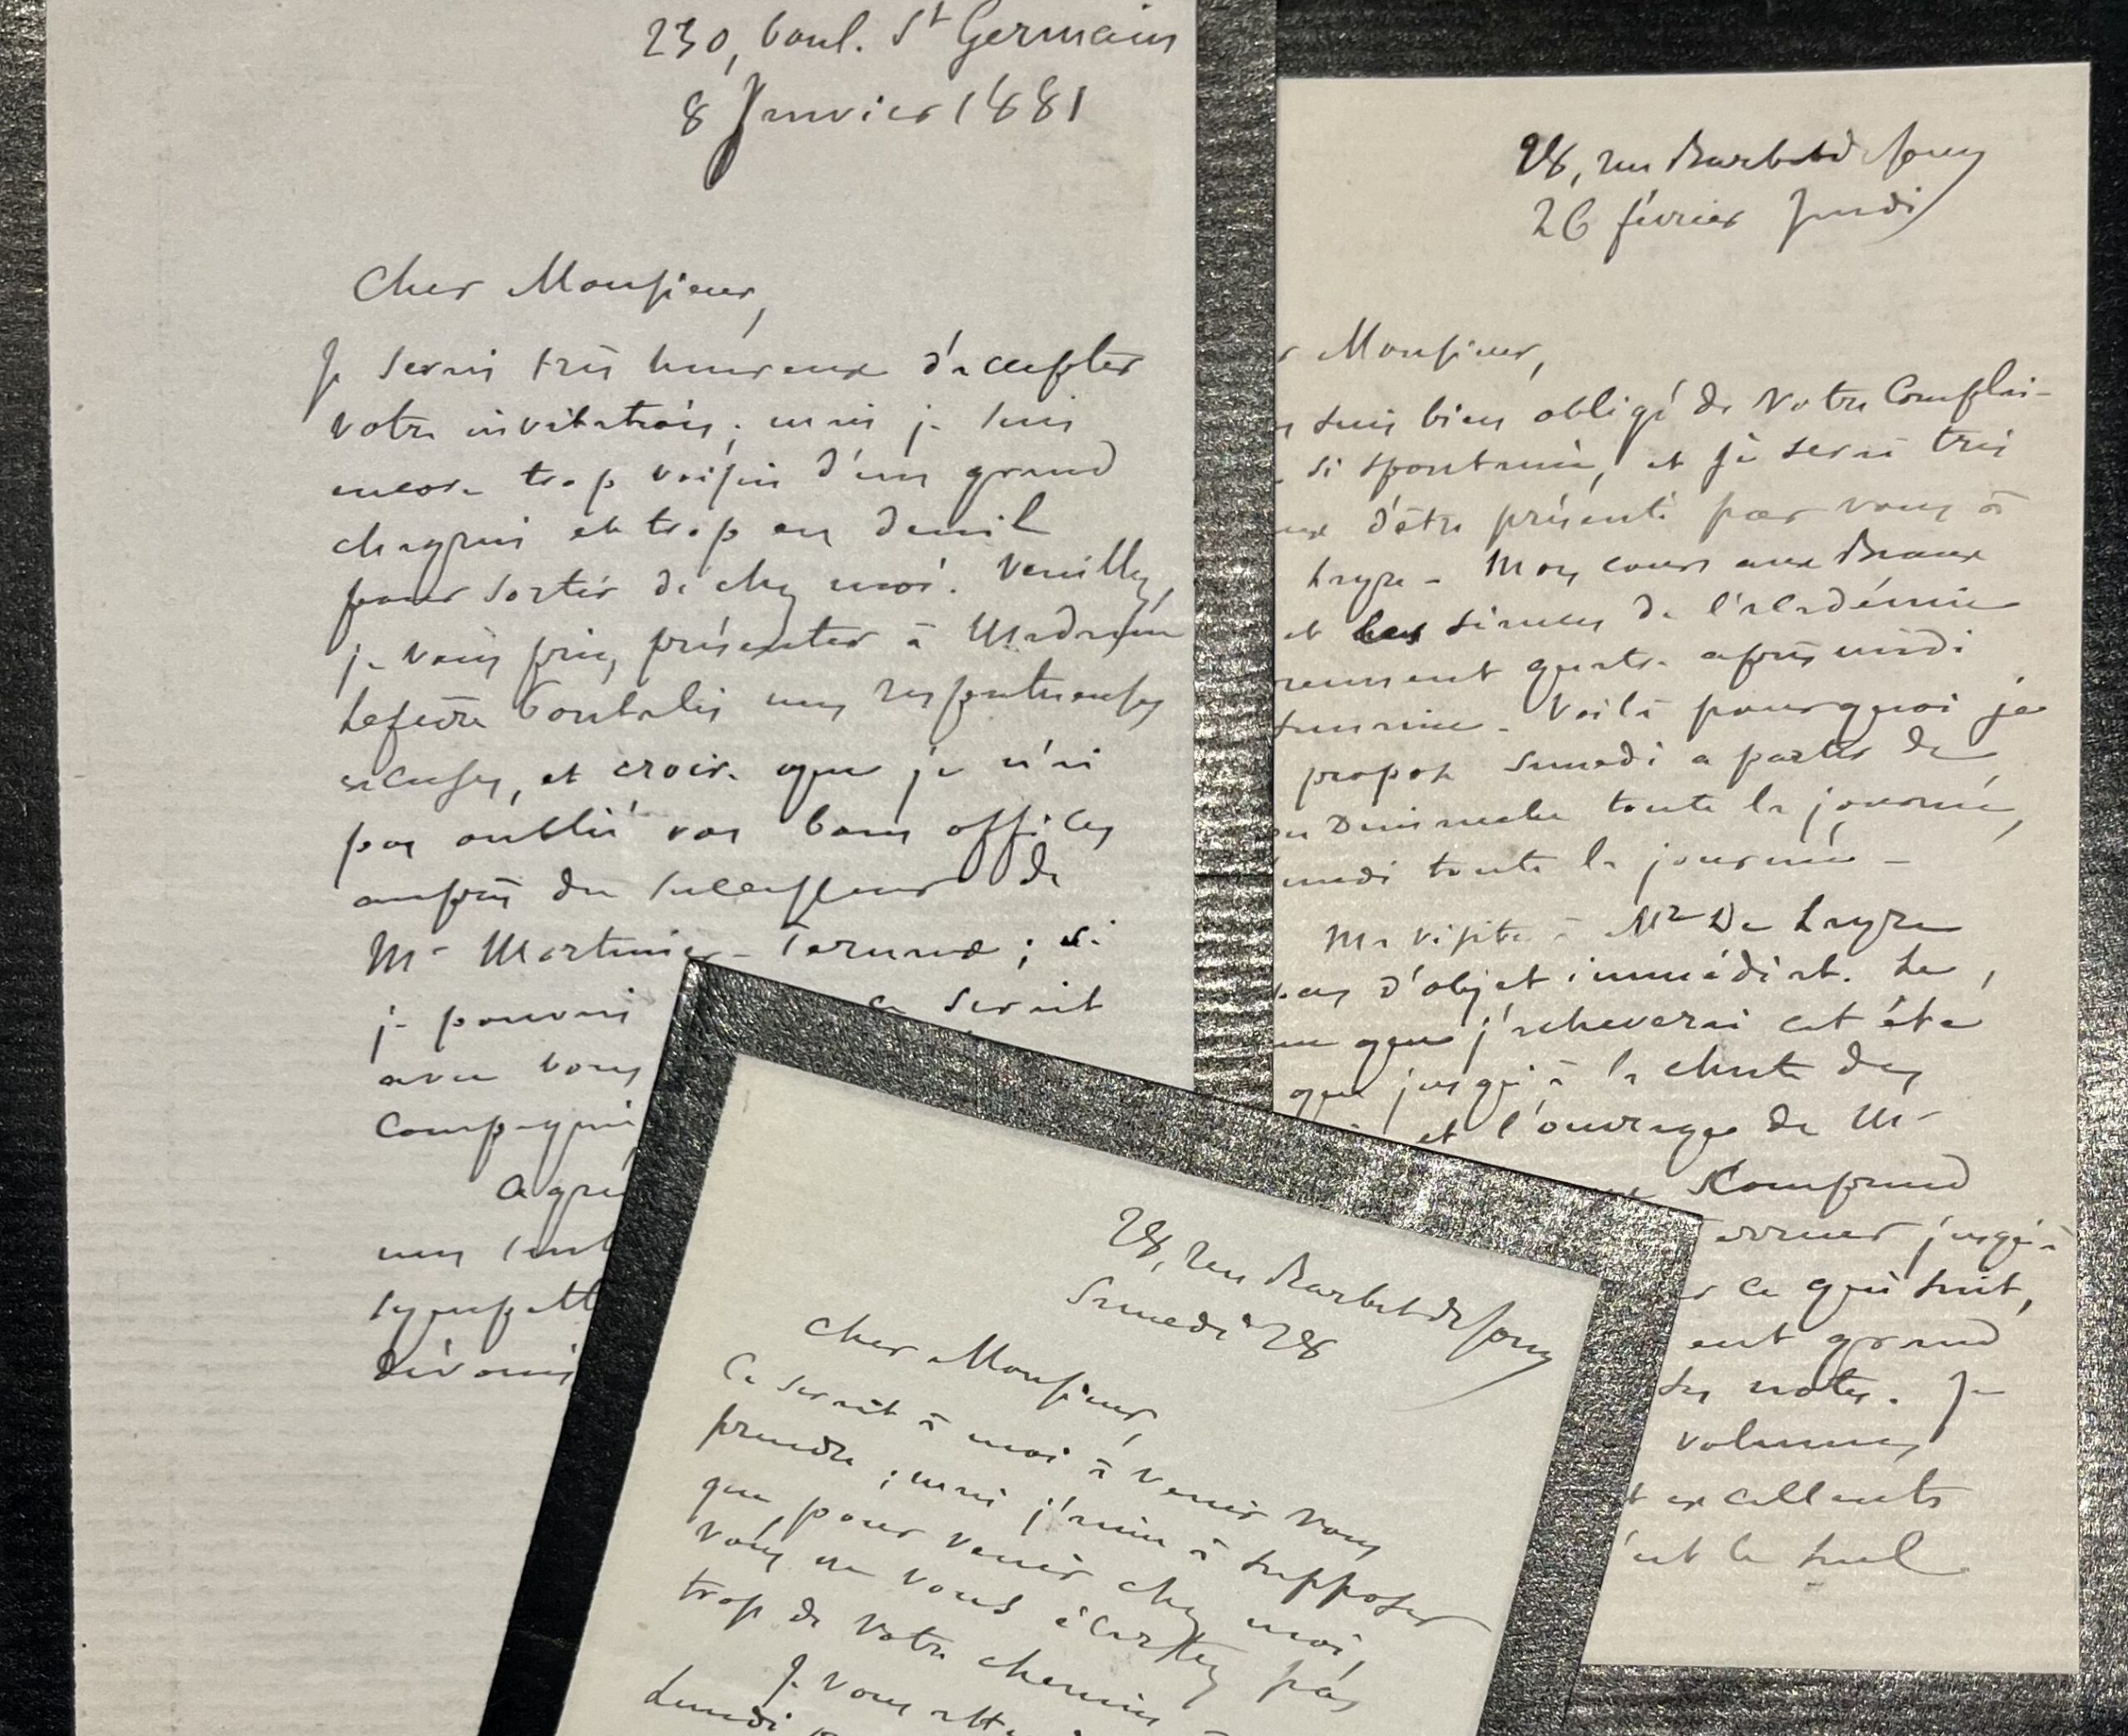 230, boul. St Germain
8 Janvier 1881
Cher Monsieur,
Je serais très heureux d'accepter
votre invitation ; mais je suis
encore trop voisin d'un grand
chagrin et trop en deuil
pour sortir de chez moi. Veuillez,
je vous prie, présenter à Madame
Lefèvre Pontalis mes respectueuses
excuses, et croire que je n'ai
pas oublié vos bons offices
auprès du successeur de
Mr Mortimer-Ternaux ; si
je pouvais
ce serait
avec vous
Compagnie
Agré
mes sent
sympath
dévoués
28, rue Barbet de Jouy
26 février Jeudi
r Monsieur,
suis bien obligé de votre Complai-
si spontanée, et je serai très
d'être présenté par vous à
Layre - Mon cours aux Beaux
et les séances de l'académie
rennent quatre après midi
semaine. Voilà pourquoi je
propose samedi a partir de
ou Dimanche toute la journée,
undi toute la journée -
Ma visite à Mr De Layre
pas d'objet immédiat. Le
que j'acheverai cet été
que jusqu'à la chute des
et l'ouvrage de Mr
Comprend
jusqu'à
r ce qui suit,
ent grand
ses notes. Je
volumes
t excellents
'est le seul
28, rue Barbet de Jouy
Samedi 28
Cher Monsieur,
Ce serait à moi à venir vous
prendre ; mais j'aime à supposer
que pour venir chez moi,
vous ne vous écartez pas
trop de votre chemin
Je vous att
Lundi